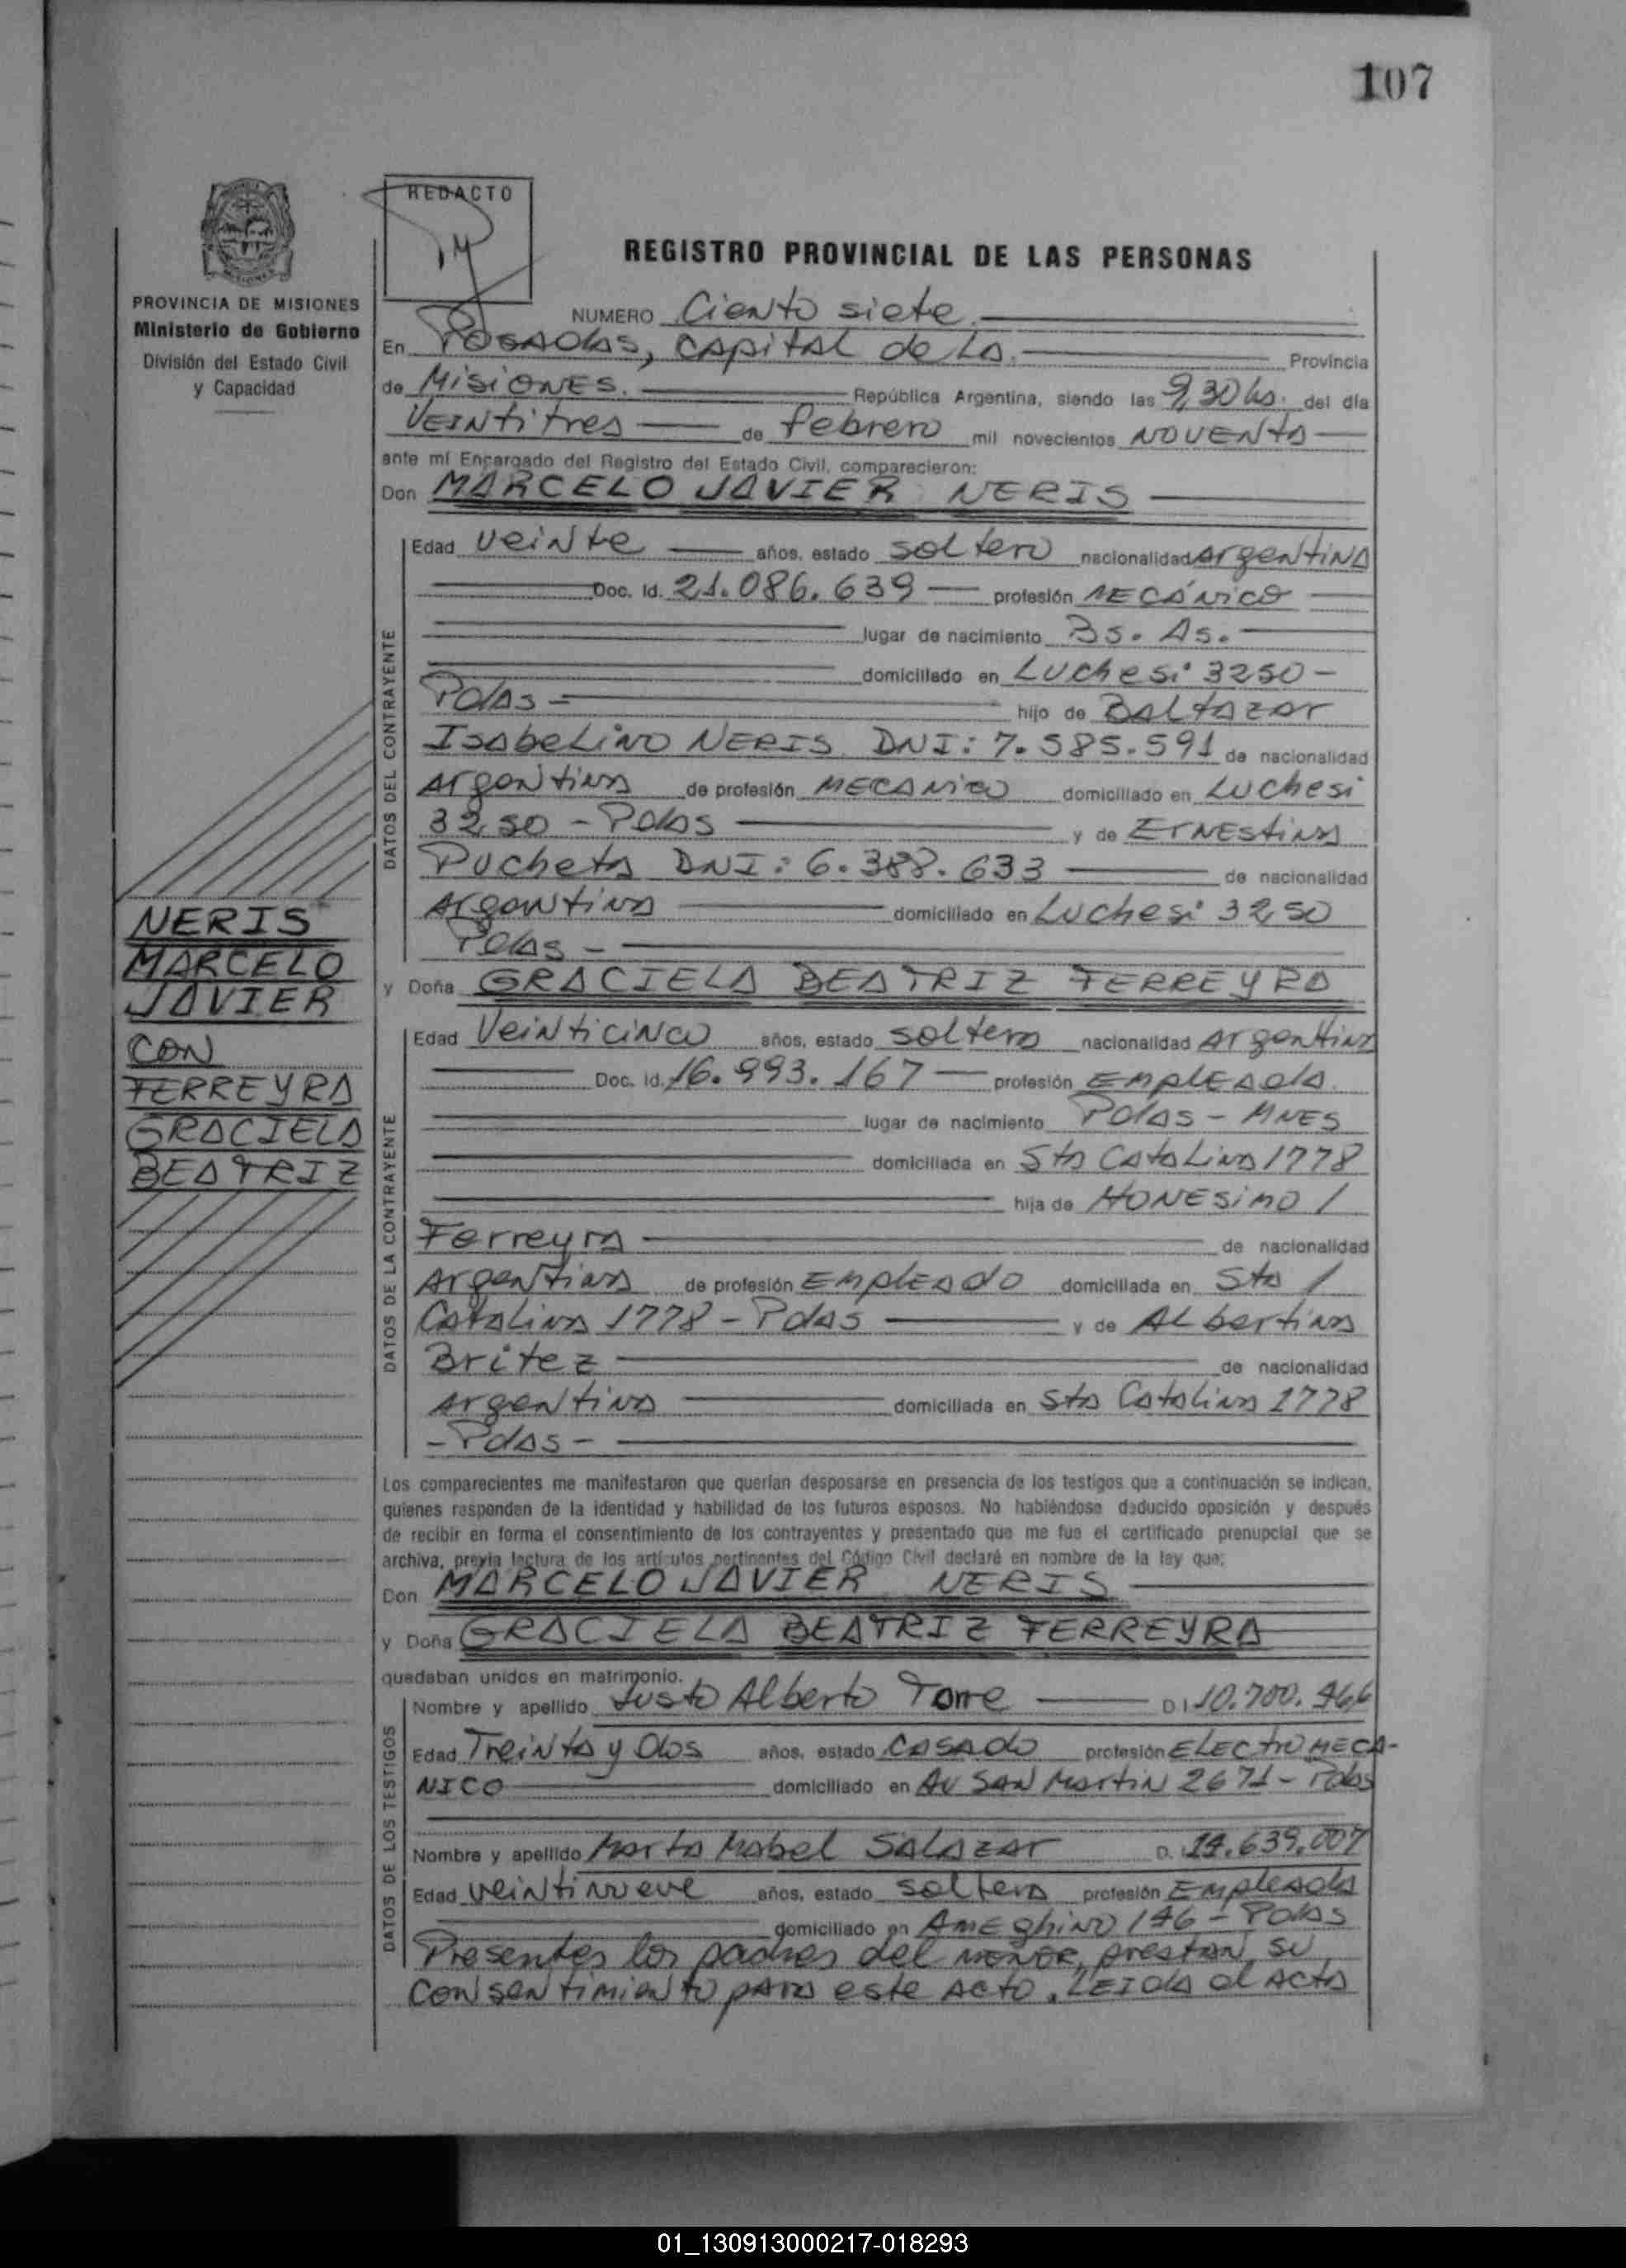 107
REDACTO
REGISTRO PROVINCIAL DE LAS PERSONAS
PROVINCIA DE MISIONES
Ministerio de Gobierno
División del Estado Civil
y Capacidad
NUMERO Ciento siete
En Posadas, capital de la Provincia
de Misiones. República Argentina, siendo las 9,30 hs. del día
veintitres de febrero mil novecientos noventa
ante mí Encargado del Registro del Estado Civil, comparecieron:
Don MARCELO JAVIER NERIS
DATOS DEL CONTRAYENTE
Edad veinte años, estado soltero nacionalidad argentina
Doc. Id. 21.086.639 profesión mecánico
lugar de nacimiento Bs. As.
domiciliado en Luchesi 3250 -
Pdas - hijo de Baltazar
Isabelino NERIS DNI: 7.585.591 de nacionalidad
argentina de profesión mecanico domiciliado en Luchesi
3250 - Pdas y de Ernestina
Pucheta DNI: 6.388.633 de nacionalidad
argentina domiciliado en Luchesi 3250
Pdas -
y Doña GRACIELA BEATRIZ FERREYRA
NERIS
MARCELO
JAVIER
CON
FERREYRA
GRACIELA
BEATRIZ
DATOS DE LA CONTRAYENTE
Edad veinticinco años, estado soltera nacionalidad argentina
Doc. Id. 16.993.167 profesión empleada
lugar de nacimiento Pdas - Mnes
domiciliada en Sta Catalina 1778
hija de Honesimo /
Ferreyra de nacionalidad
argentina de profesión empleado domiciliada en Sta /
Catalina 1778 - Pdas y de Albertina
Britez de nacionalidad
argentina domiciliada en Sta Catalina 1778
- Pdas -
Los comparecientes me manifestaron que querían desposarse en presencia de los testigos que a continuación se indican,
quienes responden de la identidad y habilidad de los futuros esposos. No habiéndose deducido oposición y después
de recibir en forma el consentimiento de los contrayentes y presentado que me fue el certificado prenupcial que se
archiva, previa lectura de los artículos pertinentes del Código Civil declaré en nombre de la ley que:
Don MARCELO JAVIER NERIS
y Doña GRACIELA BEATRIZ FERREYRA
quedaban unidos en matrimonio.
DATOS DE LOS TESTIGOS
Nombre y apellido Justo Alberto Torre D I 10.700.
Edad Treinta y dos años, estado casado profesión electromeca-
nico domiciliado en Av San Martin 2671 - Pdas
Nombre y apellido Marta Mabel Salazar D. 14.639.007
Edad veintinueve años, estado soltera profesión empleada
domiciliado en Ameghino - Pdas
Presentes los padres del menor, prestan su
consentimiento para este acto. Leida el acta
01_130913000217-018293